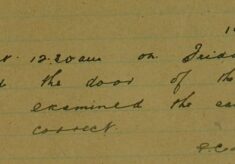 12.20am on Frida
the door of the
examined the
correct.